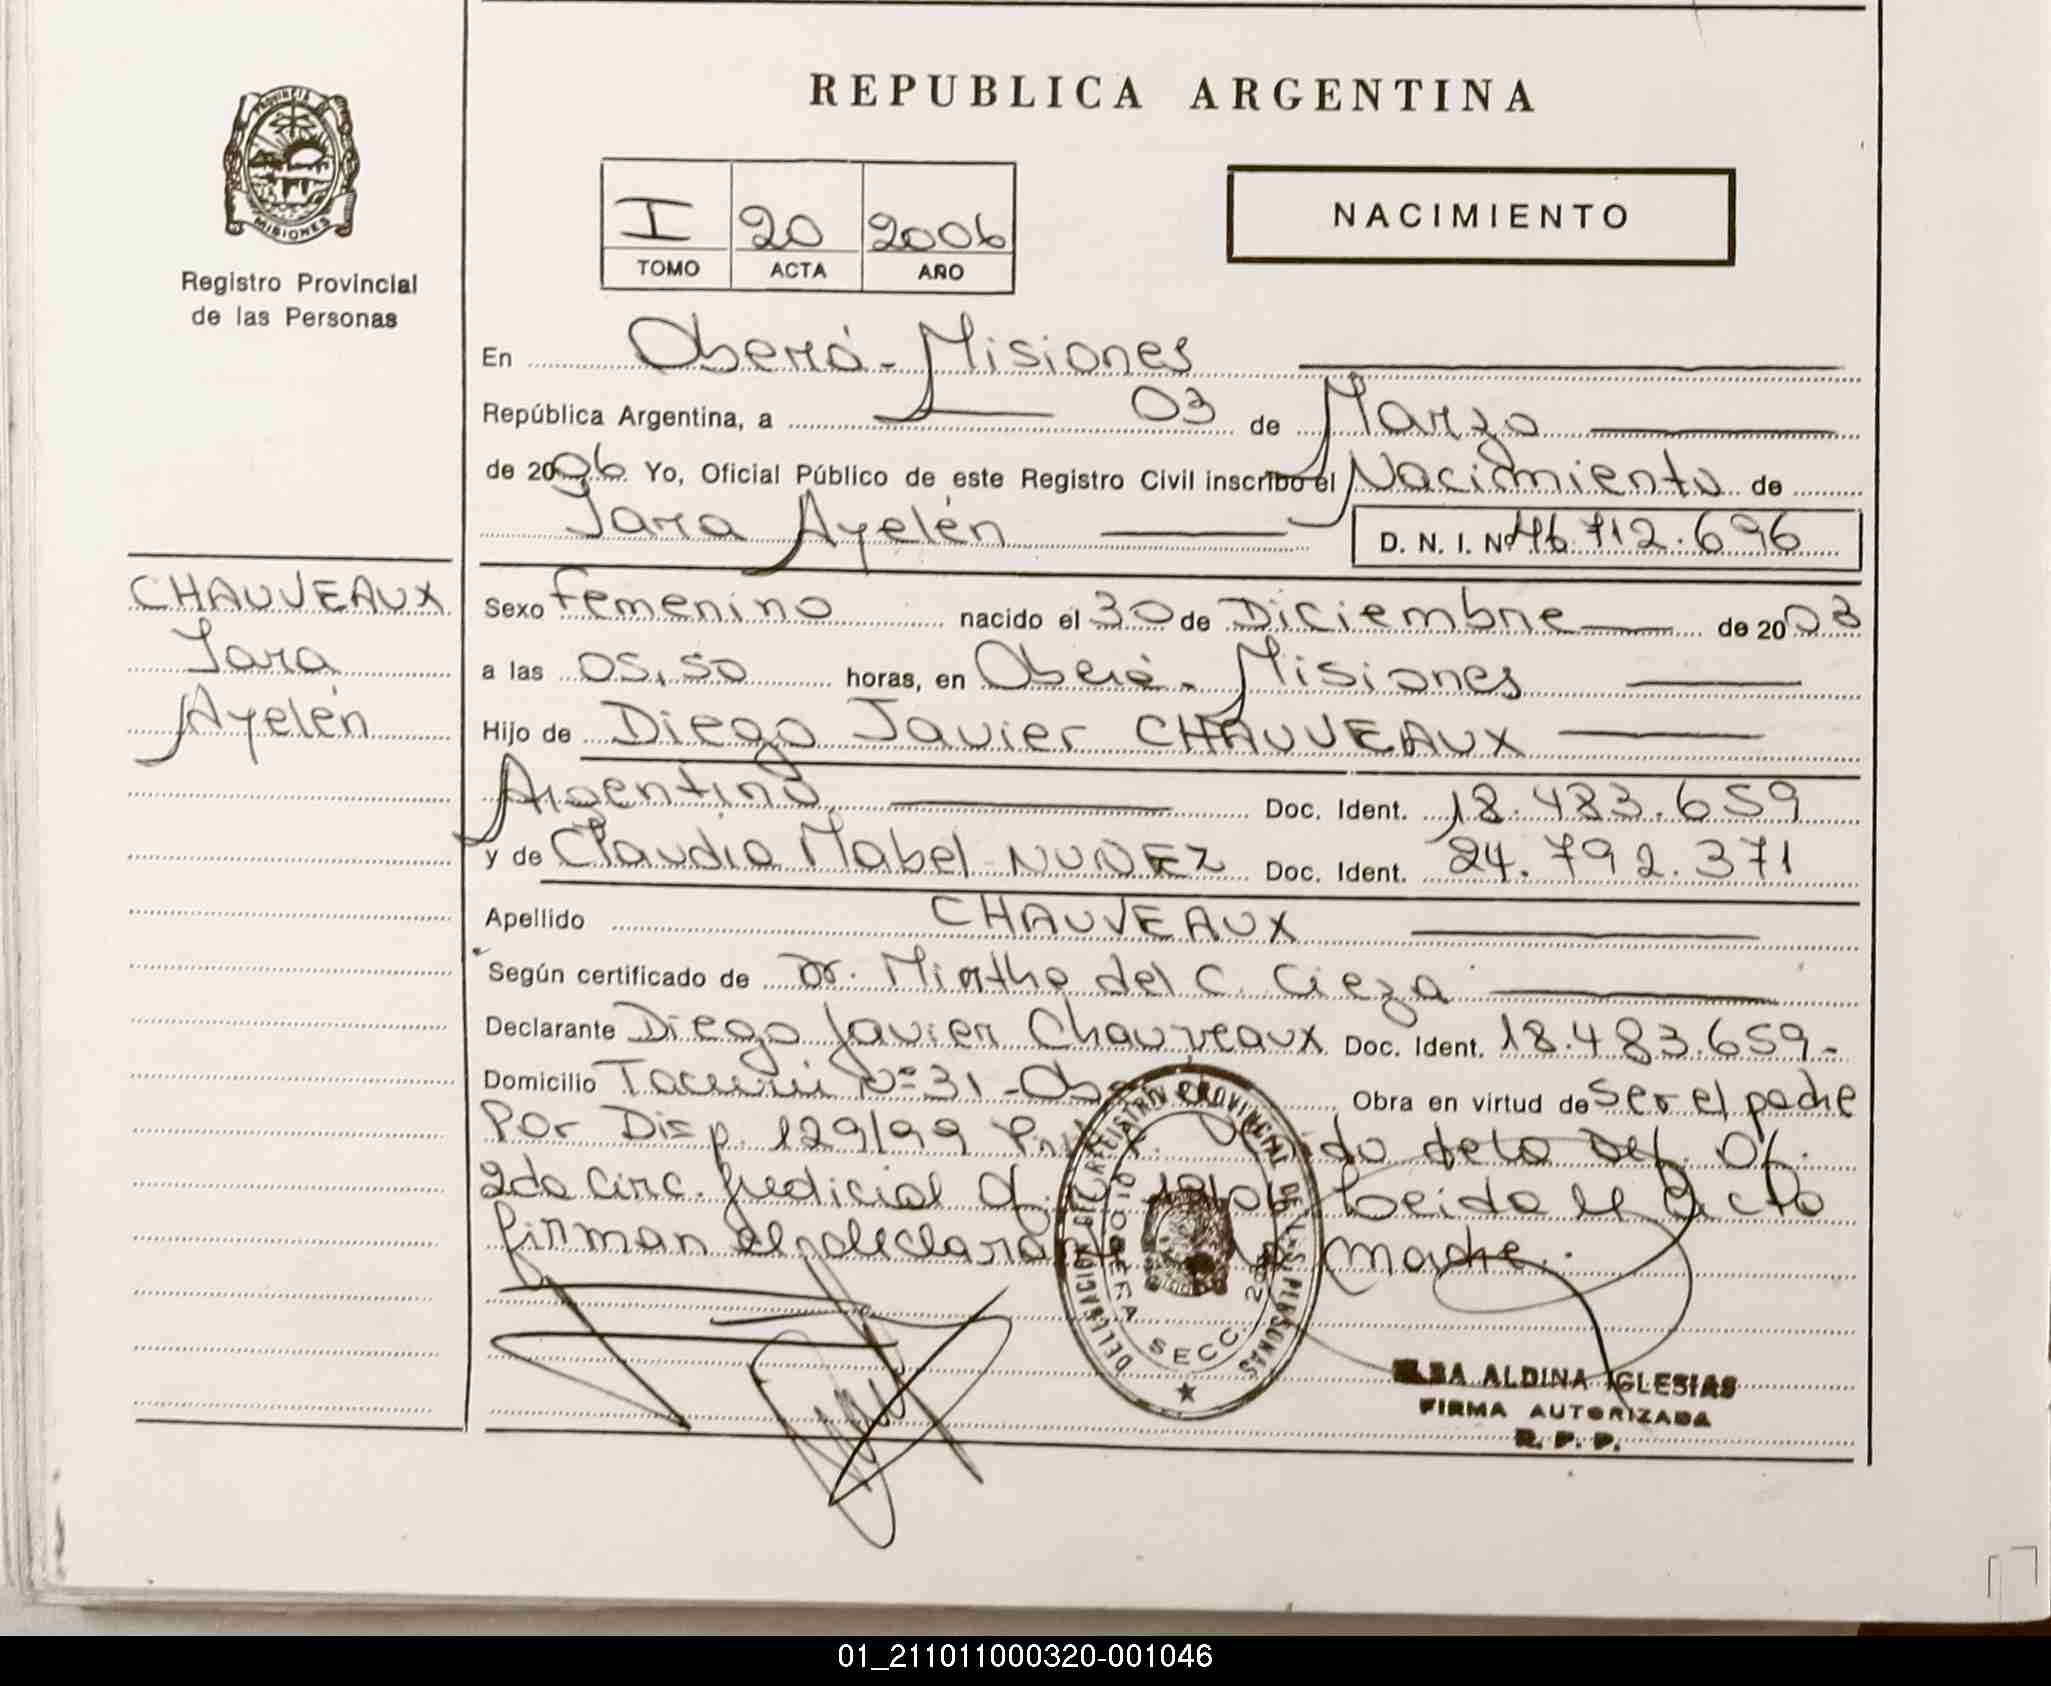 REPUBLICA ARGENTINA
PROVINCIA DE
MISIONES
Registro Provincial
de las Personas
I 20 2006
TOMO ACTA AÑO
NACIMIENTO
En Oberá - Misiones
República Argentina, a 03 de Marzo
de 2006 Yo, Oficial Público de este Registro Civil inscribo el Nacimiento de
Iara Ayelén D. N. I. Nº 46.712.696
CHAUVEAUX
Iara
Ayelén
Sexo femenino nacido el 30 de Diciembre de 2003
a las 05,50 horas, en Oberá - Misiones
Hijo de Diego Javier CHAUVEAUX
Argentino Doc. Ident. 18.483.659
y de Claudia Mabel NUÑEZ Doc. Ident. 24.792.371
Apellido CHAUVEAUX
Según certificado de Dr. Mirtha del C. Cieza
Declarante Diego Javier Chauveaux Doc. Ident. 18.483.659.-
Domicilio Nº 31 - Obra en virtud de ser el padre
Por Disp. 129/99 de la Def. Of.
2da Circ. Judicial Of. Leida el acta
firman el declarante madre.
DELEGACION DEL REGISTRO PROVINCIAL DE LAS PERSONAS
OBERA SECC. 2da
ELBA ALDINA IGLESIAS
FIRMA AUTORIZADA
R. P. P.
01_211011000320-001046